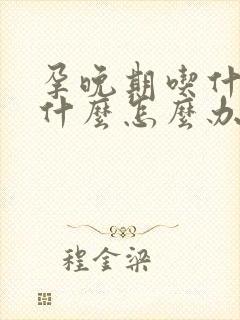 孕晚期喫什
什麼怎麼办
程金梁